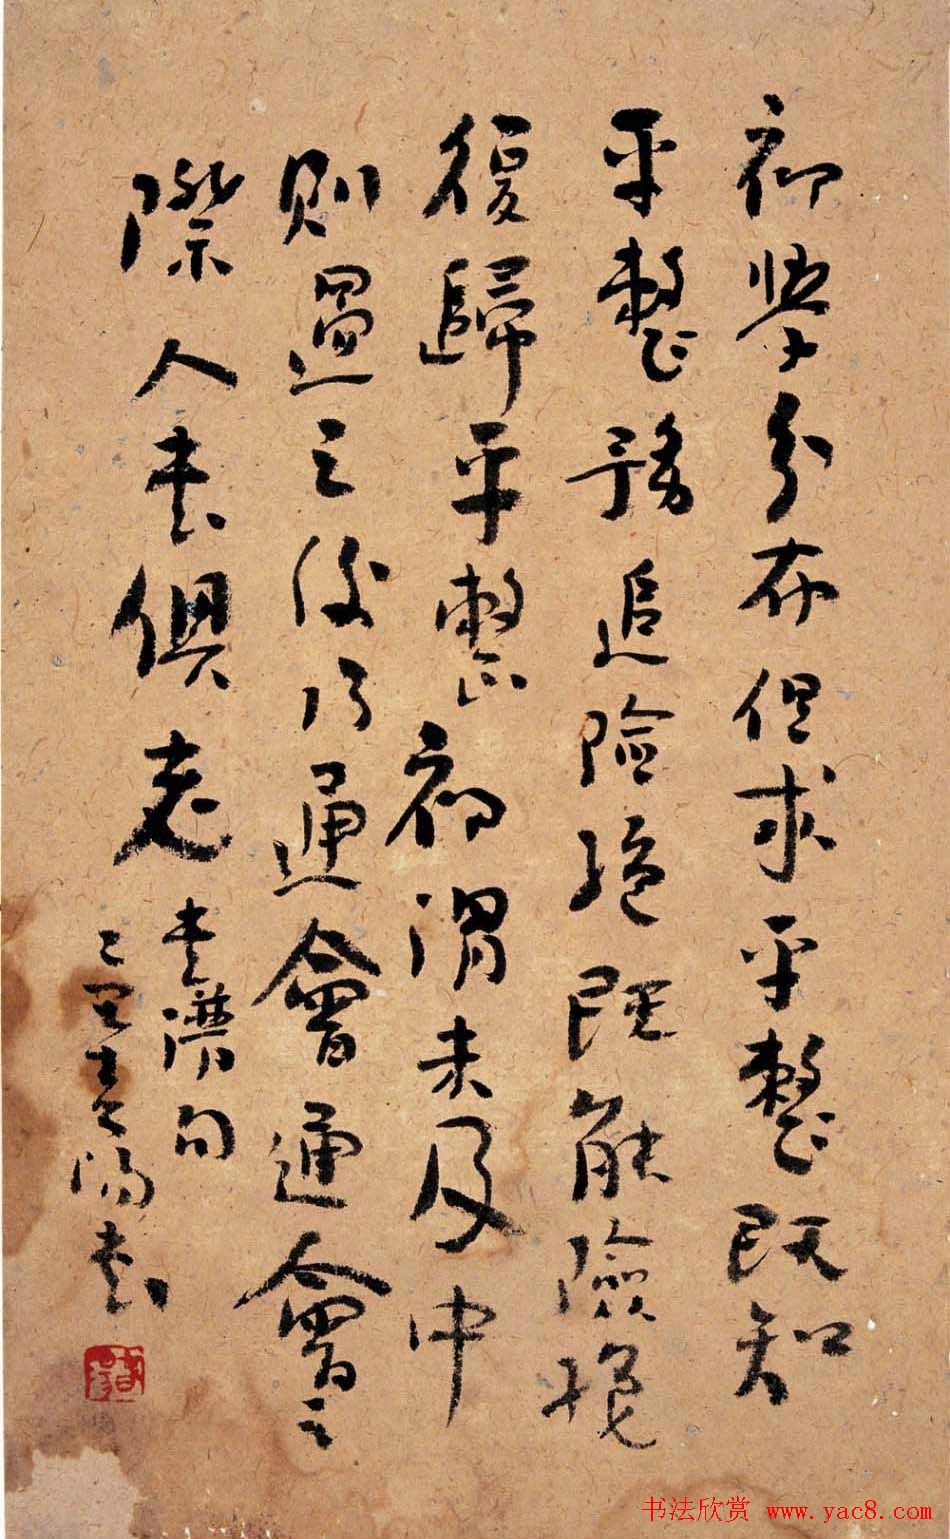 初學分布但求平整既知
平整務追險絕既能險絕
復歸平整初謂未及中
則過之後乃通會通會之
際人書俱老
書譜句
乙陽書
书法欣赏 www.yac8.com